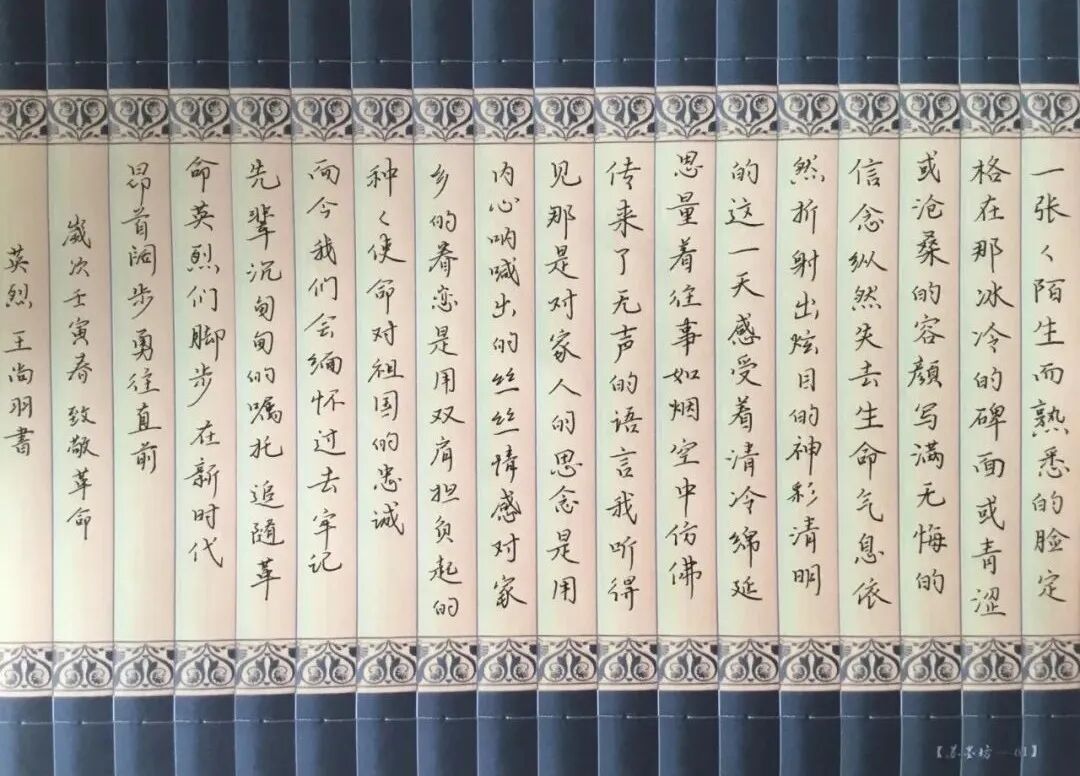 一张〱陌生而熟悉的脸定
格在那冰冷的碑面或青涩
或沧桑的容颜写满无悔的
信念纵然失去生命气息依
然折射出炫目的神彩清明
的这一天感受着清冷绵延
思量着往事如烟空中仿佛
传来了无声的语言我听得
见那是对家人的思念是用
内心呐喊出的丝丝情感对家
乡的眷恋是用双肩担负起的
种〱使命对祖国的忠诚
而今我们会缅怀过去牢记
先辈沉甸甸的嘱托 追随革
命英烈们脚步 在新时代
昂首阔步勇往直前
岁次壬寅春 致敬革命
英烈 王尚羽書
【墨坊——01】